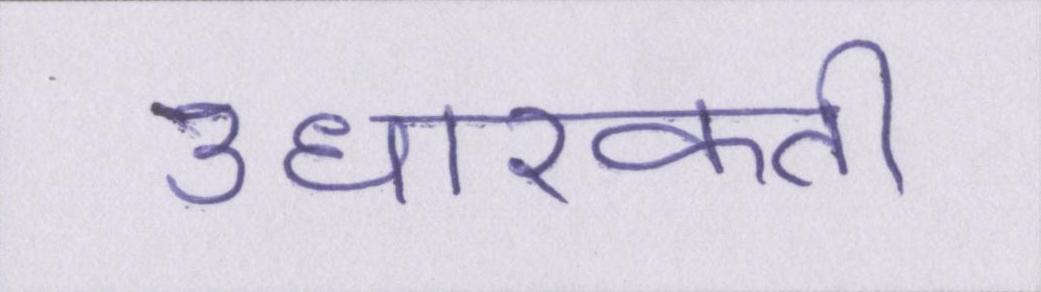 उधारकर्ता